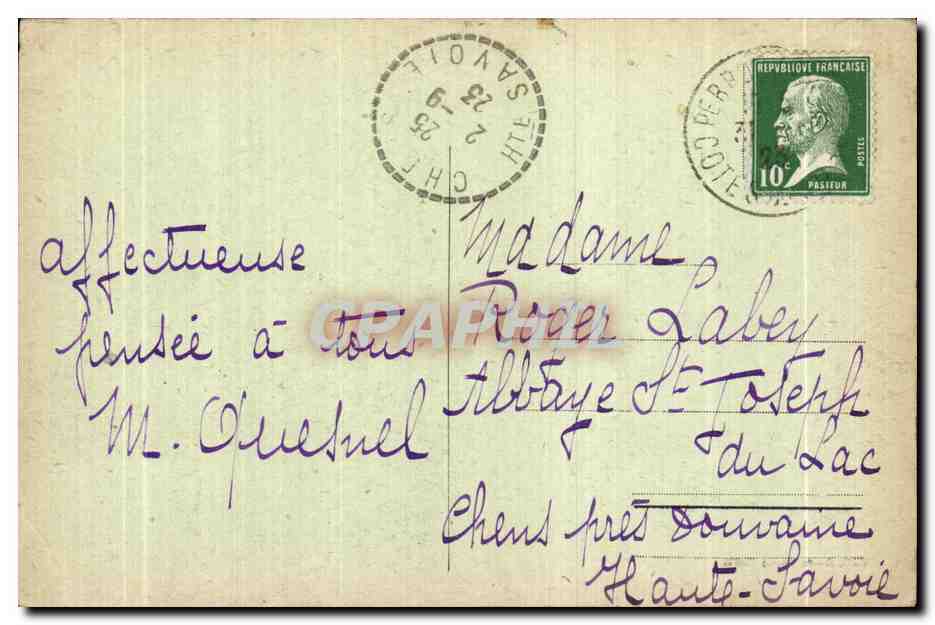 HTE SAVOIE
23
2 -9
25
REPVBLIQVE FRANÇAISE
10c
POSTES
PASTEUR
affectueuse
pensée à tous
M. Quesnel
Madame
Roger Labey
Abbaye St Joseph
du Lac
Chens près Douvaine
Haute-Savoie
CPAPHIL